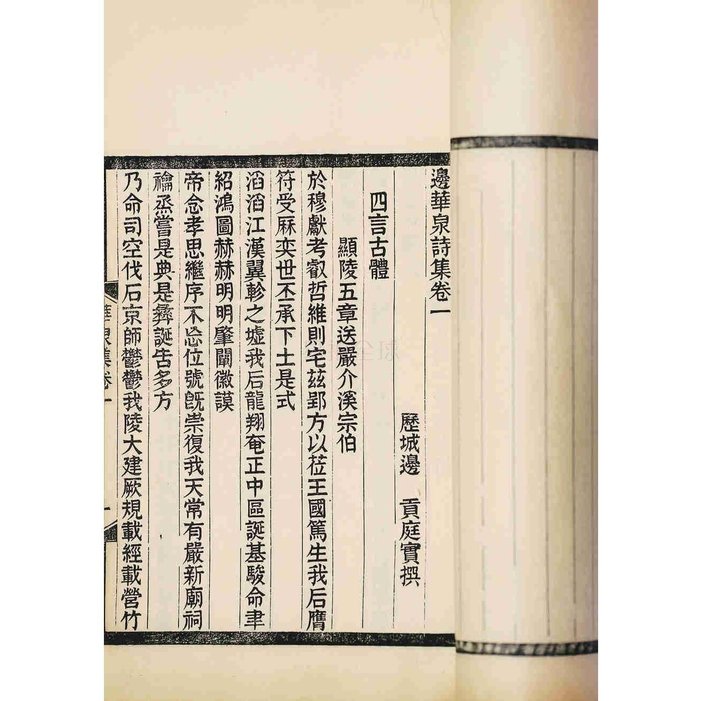 邊華泉詩集卷一
歷城邊 貢庭實撰
四言古體
顯陵五章送嚴介溪宗伯
於穆獻考叡哲維則宅茲郢方以莅王國篤生我后膺
符受庥奕世丕承下土是式
滔滔江漢翼軫之墟我后龍翔奄正中區誕基駿命聿
紹鴻圖赫赫明明肇闡徽謨
帝念孝思繼序不忘位號旣崇復我天常有嚴新廟祠
禴烝嘗是典是彝誕告多方
乃命司空伐石京師鬱鬱我陵大建厥規載經載營竹
華泉集卷一
一